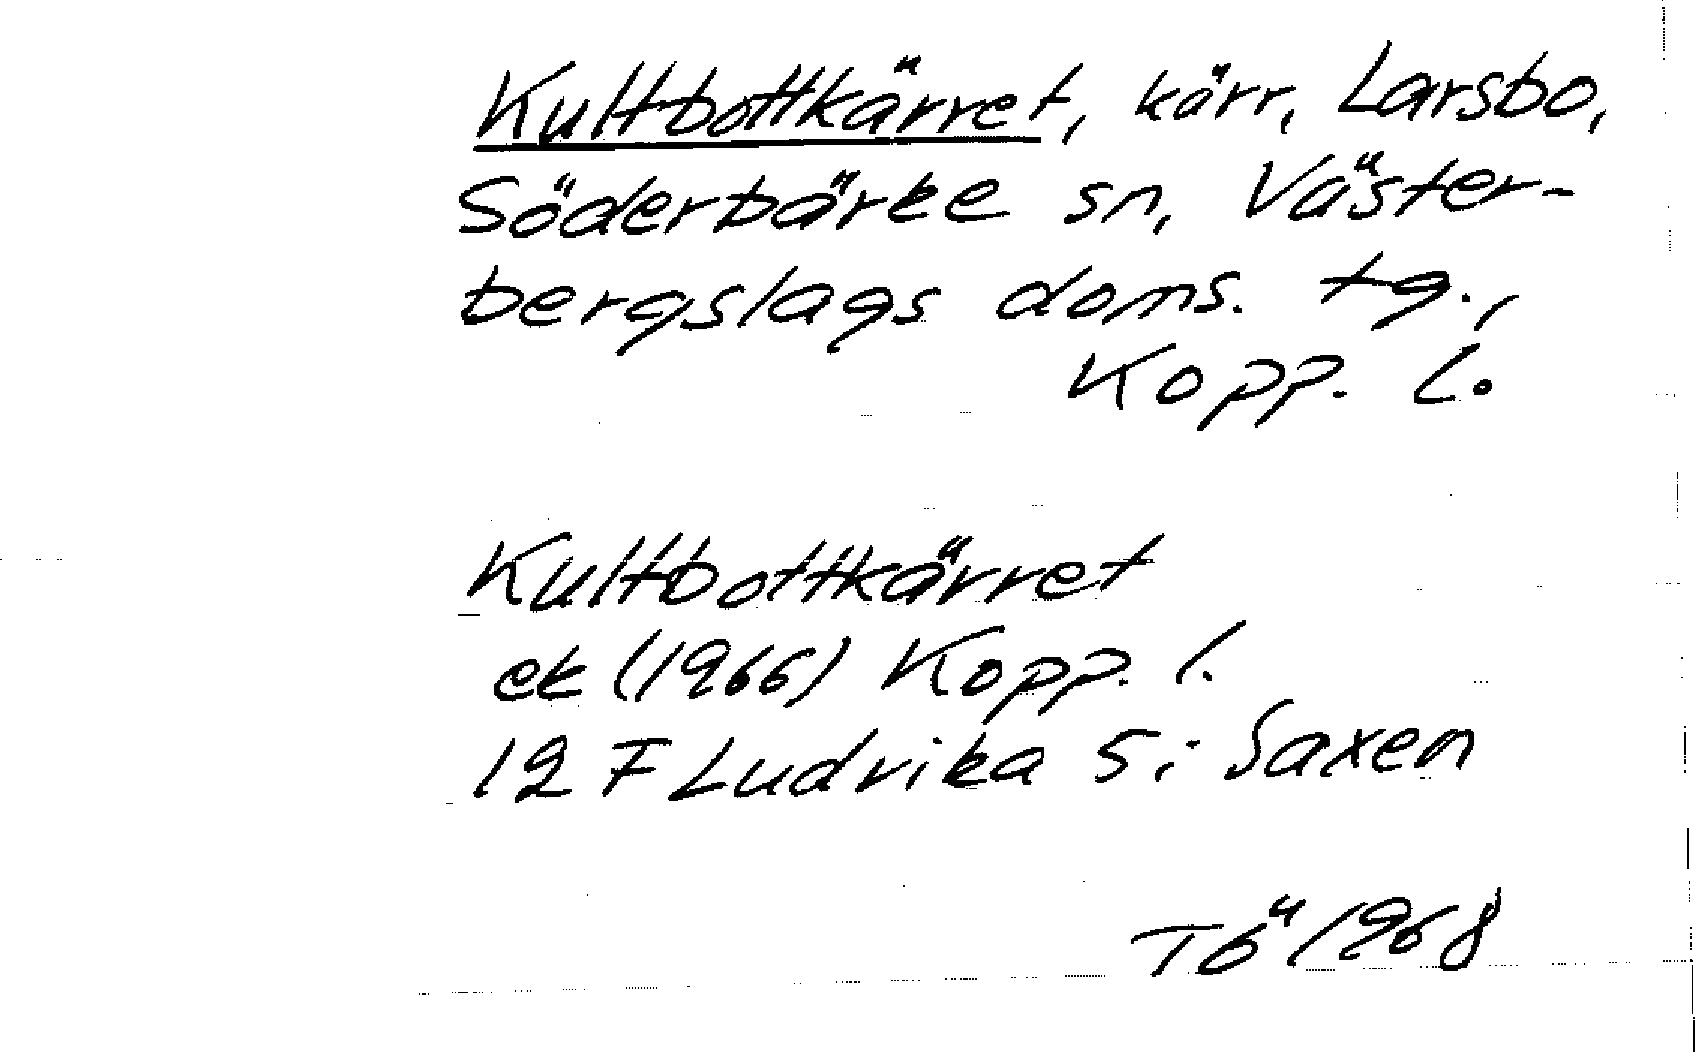 Kultbottkärret, kärr, Larsbo,
Söderbärke sn, Väster-
bergslags doms. tg.,
Kopp. l.
Kultbottkärret
ek (1966) Kopp. l.
12 F Ludvika 5i Saxen
Tö 1968